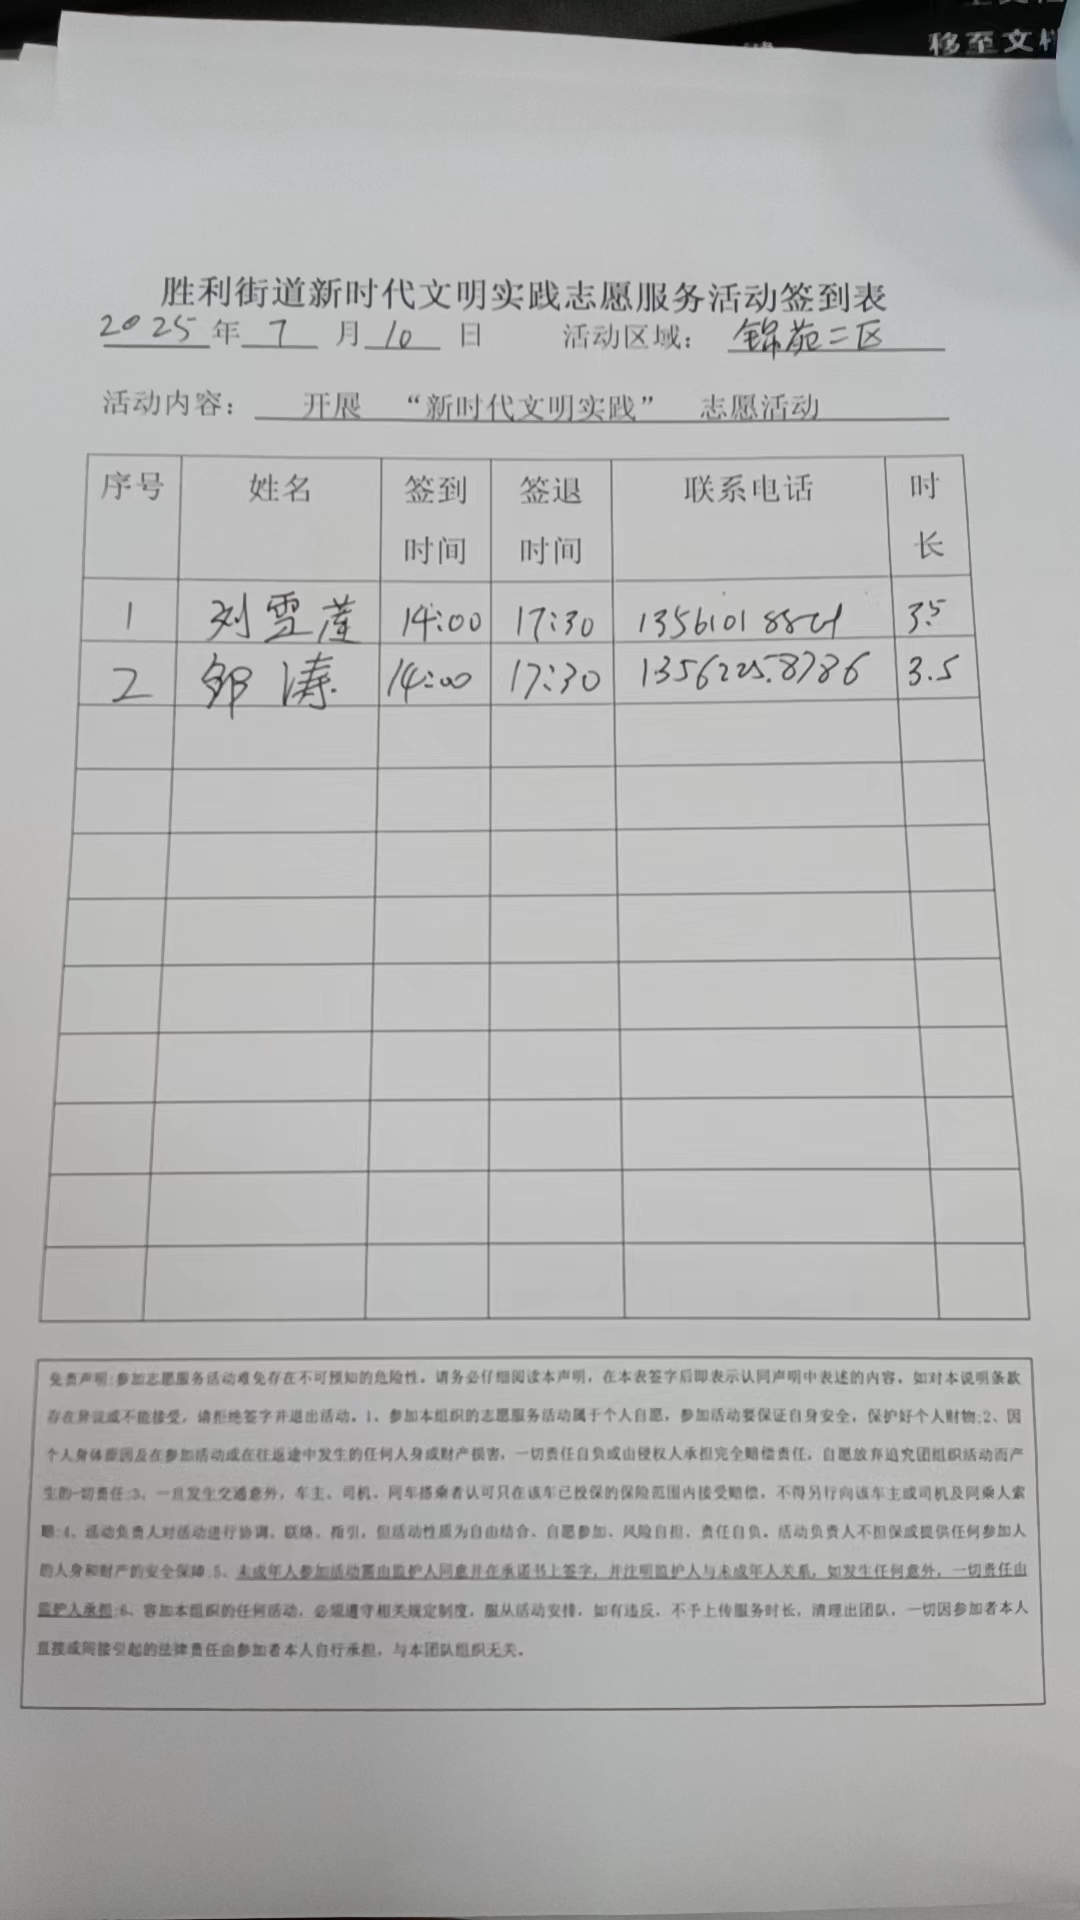 移至文档
胜利街道新时代文明实践志愿服务活动签到表
2025年 7 月 10 日 活动区域： 锦苑二区
活动内容： 开展 “新时代文明实践” 志愿活动
序号 姓名 签到时间 签退时间 联系电话 时长
1 刘雪莲 14:00 17:30 3.5
2 邹涛 14:00 17:30 13562258786 3.5
免责声明:参加志愿服务活动难免存在不可预知的危险性，请务必仔细阅读本声明，在本表签字后即表示认同声明中表述的内容，如对本说明条款
存在异议或不能接受，请拒绝签字并退出活动。1、参加本组织的志愿服务活动属于个人自愿，参加活动要保证自身安全，保护好个人财物;2、因
个人身体原因及在参加活动或在往返途中发生的任何人身或财产损害，一切责任自负或由侵权人承担完全赔偿责任，自愿放弃追究团组织活动而产
生的一切责任;3、一旦发生交通意外，车主、司机、同车搭乘者认可只在该车已投保的保险范围内接受赔偿，不得另行向该车主或司机及同乘人索
赔;4、活动负责人对活动进行协调、联络、指引，但活动性质为自由结合、自愿参加、风险自担、责任自负。活动负责人不担保或提供任何参加人
的人身和财产的安全保障;5、未成年人参加活动需由监护人同意并在承诺书上签字，并注明监护人与未成年人关系，如发生任何意外，一切责任由
监护人承担;6、容加本组织的任何活动，必须遵守相关规定制度，服从活动安排，如有违反，不予上传服务时长，清理出团队，一切因参加者本人
直接或间接引起的法律责任由参加者本人自行承担，与本团队组织无关。